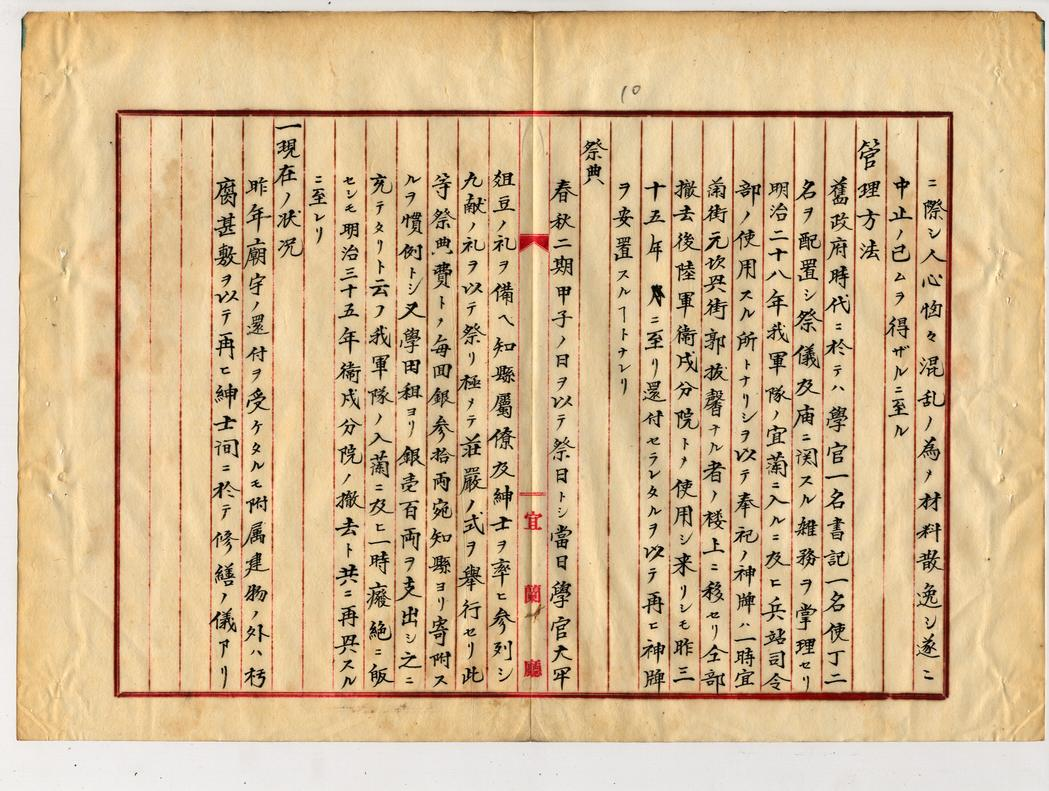 10
ニ際シ人心恟々混乱ノ為メ材料散逸シ遂ニ
中止ノ已ムヲ得ザルニ至ル
管理方法
舊政府時代ニ於テハ學官一名書記一名使丁二
名ヲ配置シ祭儀及庙ニ関スル雑務ヲ掌理セリ
明治二十八年我軍隊ノ宜蘭ニ入ルニ及ヒ兵站司令
部ノ使用スル所トナリシヲ以テ奉祀ノ神牌ハ一時宜
蘭街元坎興街郭拔馨ナル者ノ楼上ニ移セリ仝部
撤去後陸軍衞戍分院トメ使用シ来リシモ昨三
十五年 ニ至リ還付セラレタルヲ以テ再ヒ神牌
ヲ安置スルヿトナレリ
祭典
春秋二期甲子ノ日ヲ以テ祭日トシ當日學官大牢
宜蘭廳
俎豆ノ礼ヲ備ヘ知縣屬僚及紳士ヲ率ヒ参列シ
九献ノ礼ヲ以テ祭リ極メテ荘嚴ノ式ヲ舉行セリ此
等祭典費トメ毎回銀参拾両宛知縣ヨリ寄附ス
ルヲ慣例トシ又學田租ヨリ銀壱百両ヲ支出シ之ニ
充テタリト云フ我軍隊ノ入蘭ニ及ヒ一時癈絶ニ皈
セシモ明治三十五年衞戍分院ノ撤去ト共ニ再興スル
ニ至レリ
一現在ノ状况
昨年廟宇ノ還付ヲ受ケタルモ附属建物ノ外ハ朽
腐甚敷ヲ以テ再ヒ紳士间ニ於テ修繕ノ儀アリ